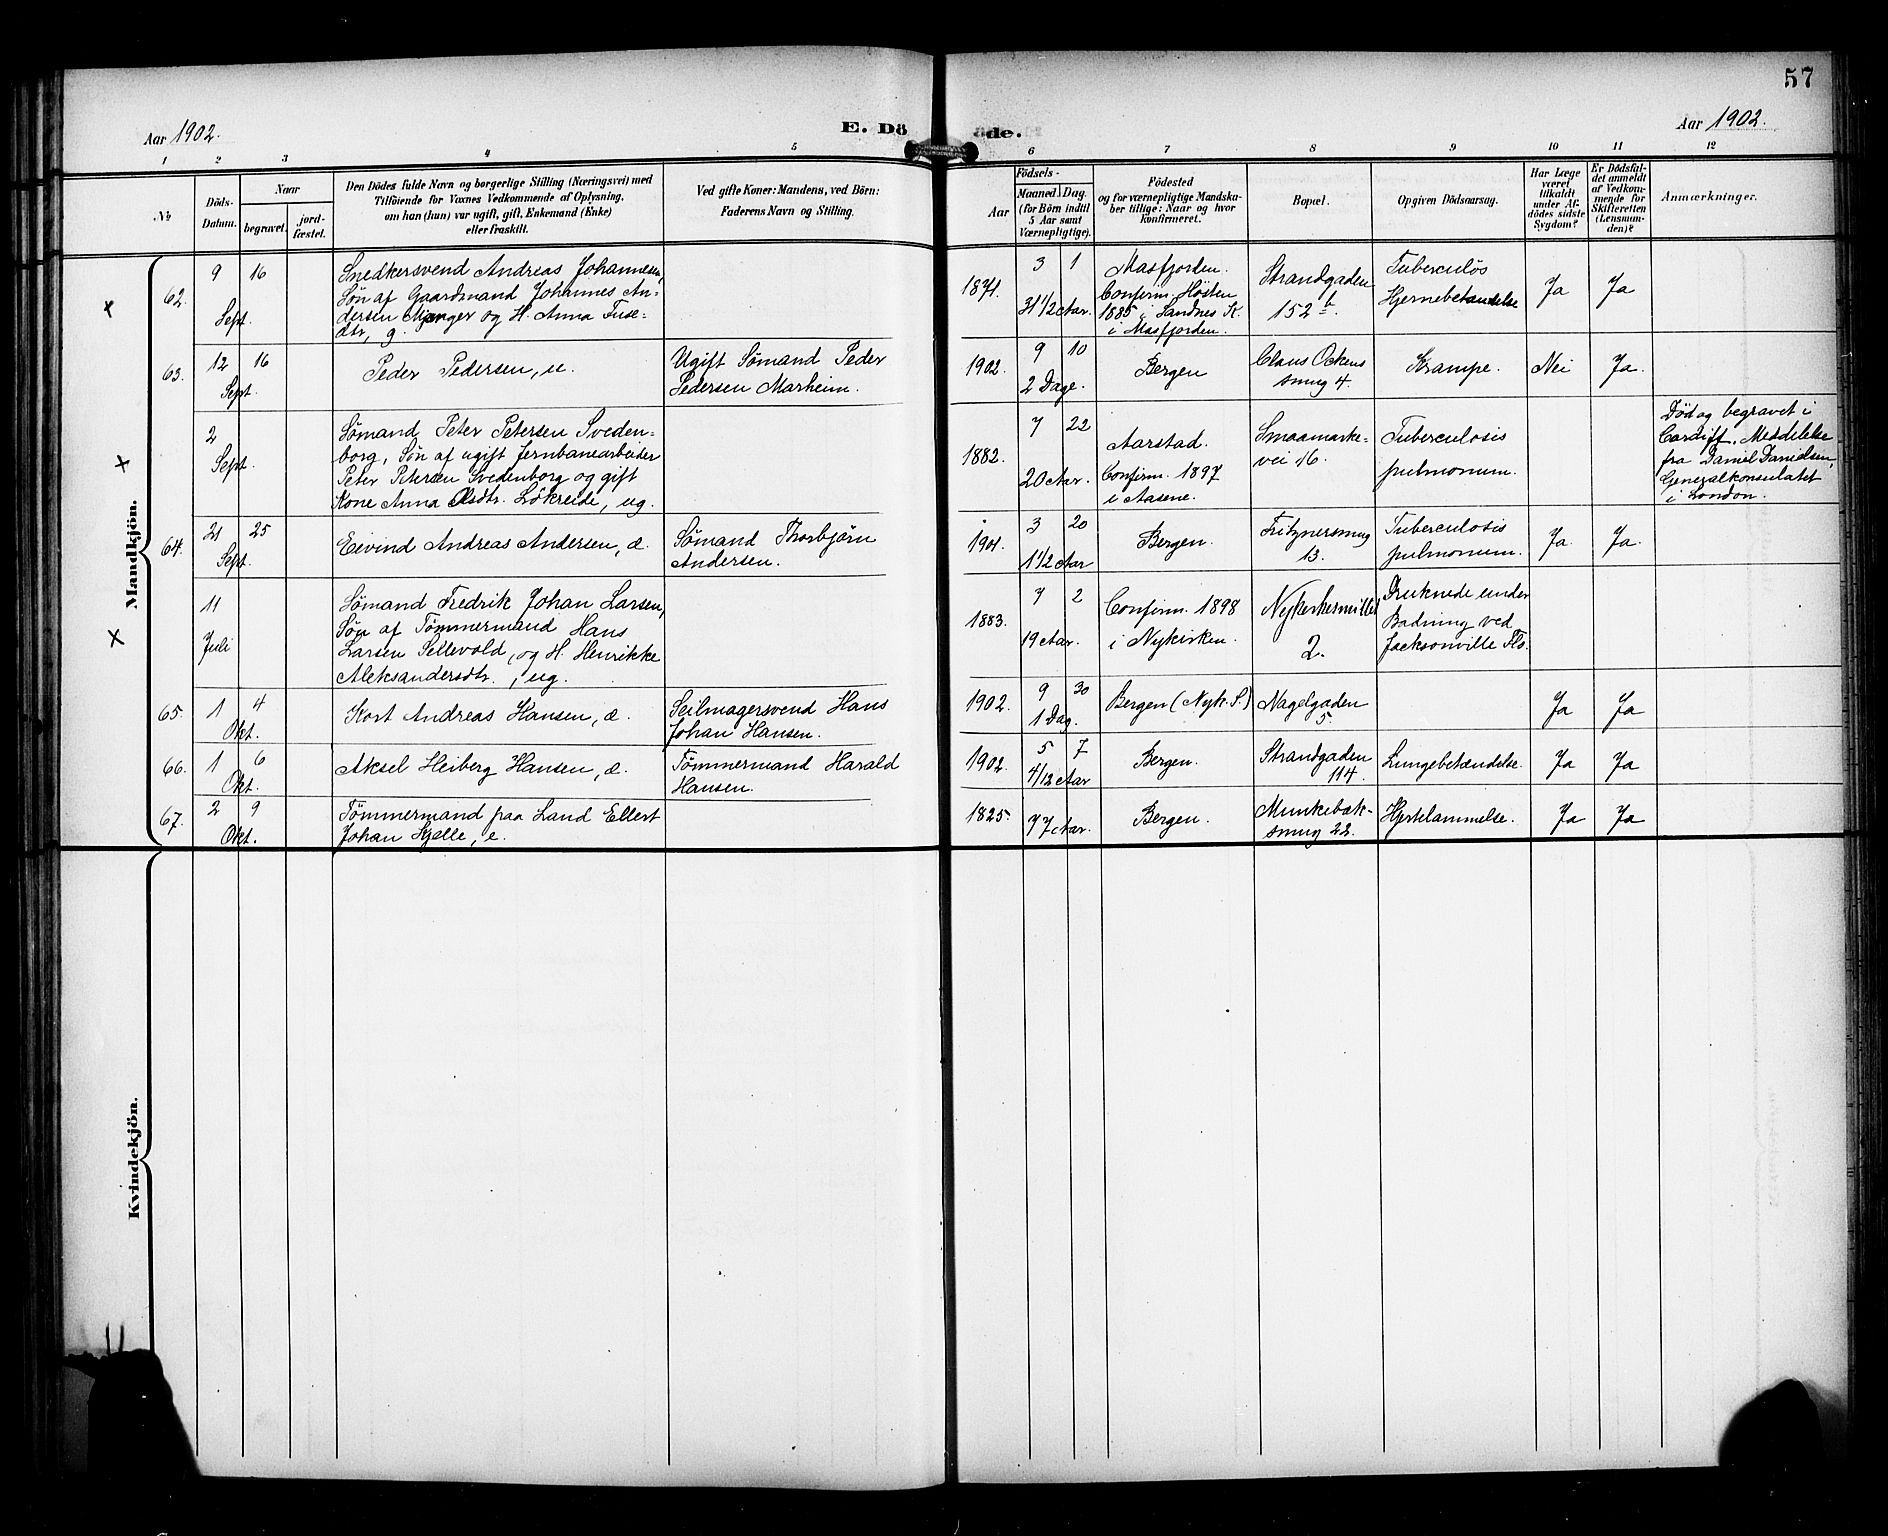 57
Aar 1902.
E. Dö
de.
Aar 1902.
1 2 3 4 5 6 7 8 9 10 11 12
№
Döds-
Datum.
Naar
begravet.
jord-
fæstet.
Den Dödes fulde Navn og borgerlige Stilling (Næringsvei) med
Tilföiende for Voxnes Vedkommende af Oplysning,
om han (hun) var ugift, gift, Enkemand (Enke)
eller fraskilt.
Ved gifte Koner: Mandens, ved Börn:
Faderens Navn og Stilling.
Födsels-
Aar
Maaned Dag.
(for Börn indtil
5 Aar samt
Værnepligtige).
Födested
og for værnepligtige Mandska-
ber tillige: Naar og hvor
konfirmeret.
Bopæl.
Opgiven Dödsaarsag.
Har Læge
været
tilkaldt
under Af-
dödes sidste
Sygdom?
Er Dödsfal-
det anmeldt
af Vedkom-
mende for
Skifteretten
(Lensman-
den)?
Anmærkninger.
Mandkjön.
62. 9 16
Sept.
Snedkersvend Andreas Johannesen,
Søn af Gaardmand Johannes An-
dersen Mjanger og H. Anna Tuse-
dtr, g.
1871. 3 1
31 1/2 Aar.
Masfjorden.
Confirm. Høsten
1885 i Sandnes K.
i Masfjorden.
Strandgaden
152 b.
Tuberculøs
Hjernebetændelse
Ja Ja
63. 12 16
Sept.
Peder Pedersen, u.
Ugift Sømand Peder
Pedersen Marheim.
1902. 9 10
2 Dage.
Bergen
Claus Ockens
smug 4.
Krampe.
Nei Ja.
2
Sept.
Sømand Peter Petersen Sveden-
borg, Søn af ugift Jernbanearbeider
Peter Petersen Svedenborg og gift
Kone Anna Olsdtr. Løkreide, ug.
1882. 7 22
20 Aar.
Aarstad.
Confirm. 1897
i Aasene.
Smaamarke-
vei 16.
Tuberculosis
pulmonum.
Død og begravet i
Cardiff. Meddelelse
fra Daniel Danielsen,
Generalkonsulatet
i London.
64. 21 25
Sept.
Eivind Andreas Andersen, æ.
Sømand Thorbjørn
Andersen.
1901. 3 20
1 1/2 Aar
Bergen.
Fritznersmug
13.
Tuberculosis
pulmonum.
Ja. Ja.
11
Juli
Sømand Fredrik Johan Larsen,
Søn af Tømmermand Hans
Larsen Sellevold, og H. Henrikke
Aleksandersdtr., ug.
1883. 7 2
19 Aar.
Confirm. 1898
i Nykirken.
Nykirkesmuttet
2.
Druknede under
Badning ved
Jacksonville Flo.
65. 1 4
Okt.
Kort Andreas Hansen, æ.
Seilmagersvend Hans
Johan Hansen.
1902. 9 30
1 Dag.
Bergen (Nyk. S.)
Nagelgaden
5
Ja Ja
66. 1 6
Okt.
Aksel Heiberg Hansen, æ.
Tømmermand Harald
Hansen.
1902. 5 7
4/12 Aar
Bergen.
Strandgaden
114.
Lungebetændelse.
Ja Ja
67. 2 9
Okt.
Tømmermand paa Land Ellert
Johan Kjelle, e.
1825.
77 Aar.
Bergen.
Munkebæk-
smug 22.
Hjertelammelse.
Ja Ja
Kvindekjön.